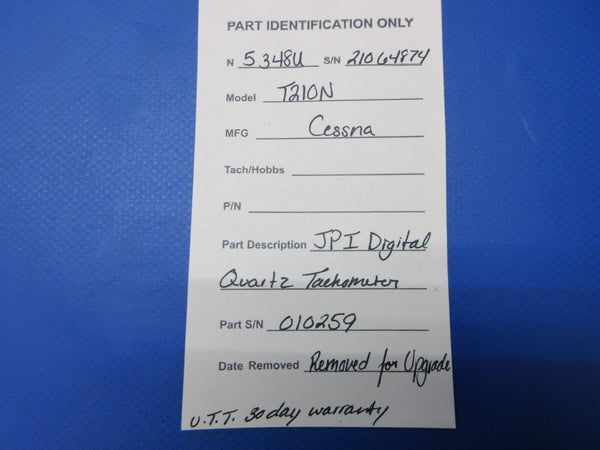 PART IDENTIFICATION ONLY
N 5348U S/N 21064874
Model T210N
MFG Cessna
Tach/Hobbs
P/N
Part Description JPI Digital
Quartz Tachometer
Part S/N 010259
Date Removed Removed for Upgrade
U.T.T. 30 day warranty